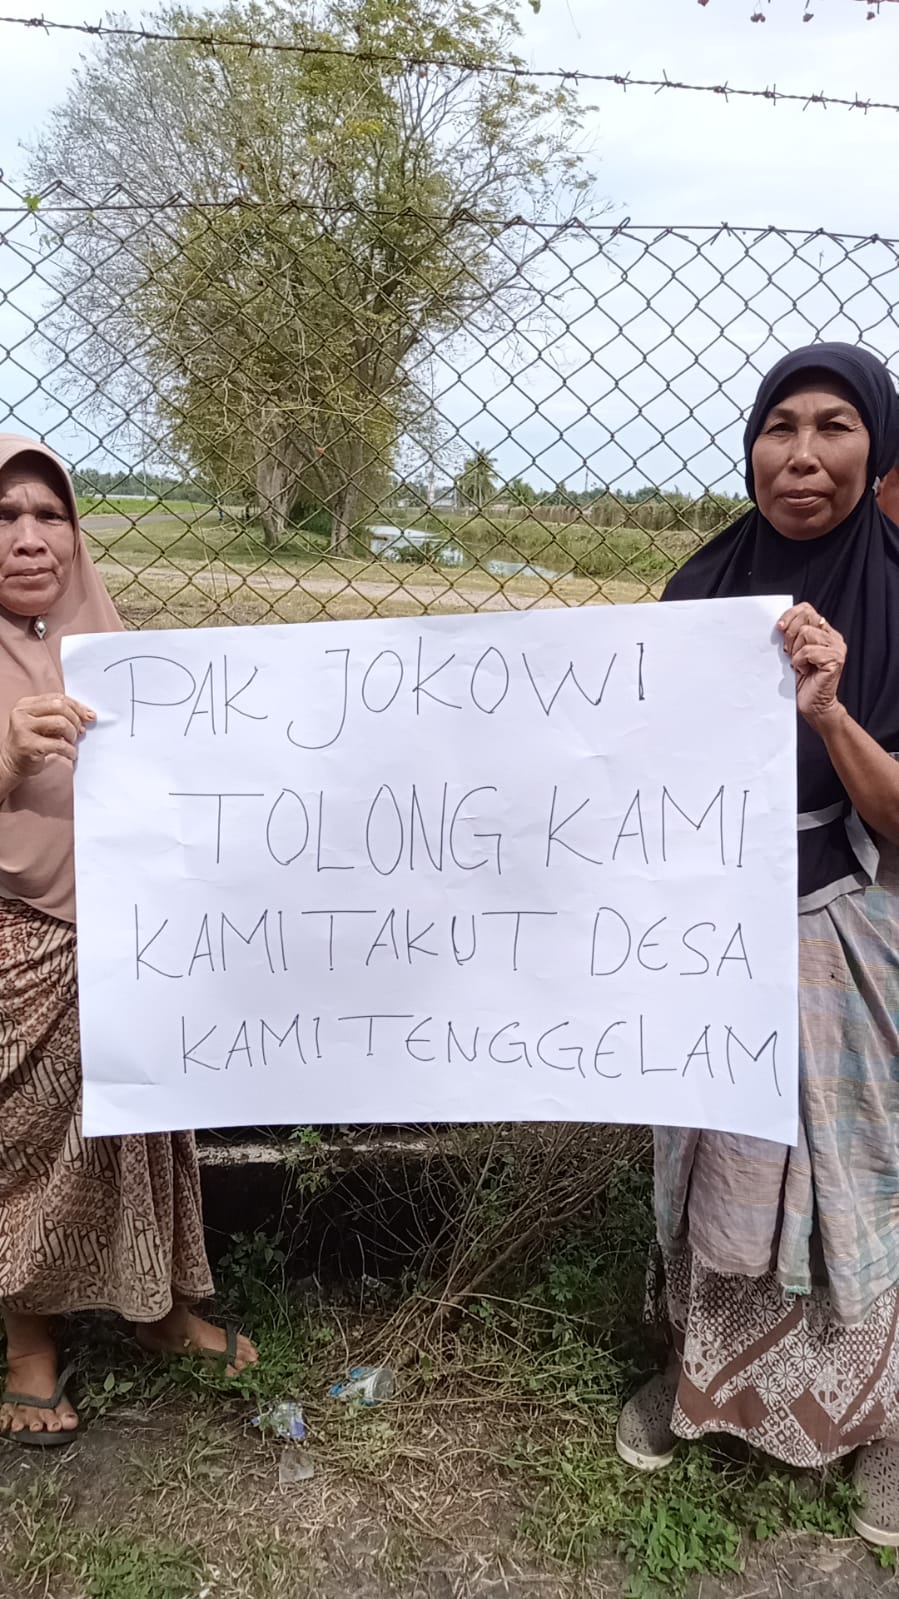 PAK JOKOWI
TOLONG KAMI
KAMI TAKUT DESA
KAMI TENGGELAM